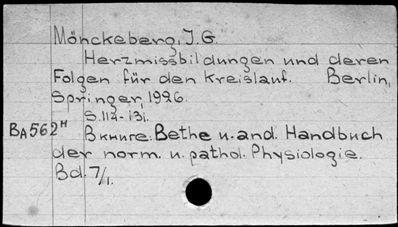 Mönckeberg, J.G.
Herzmissbildungen und deren
Folgen für den Kreislauf. Berlin,
Springer, 1926.
S. 114-131.
BA562H В книге: Bethe u. and. Handbuch
der norm. u. pathol. Physiologie.
Bd. 7/1.